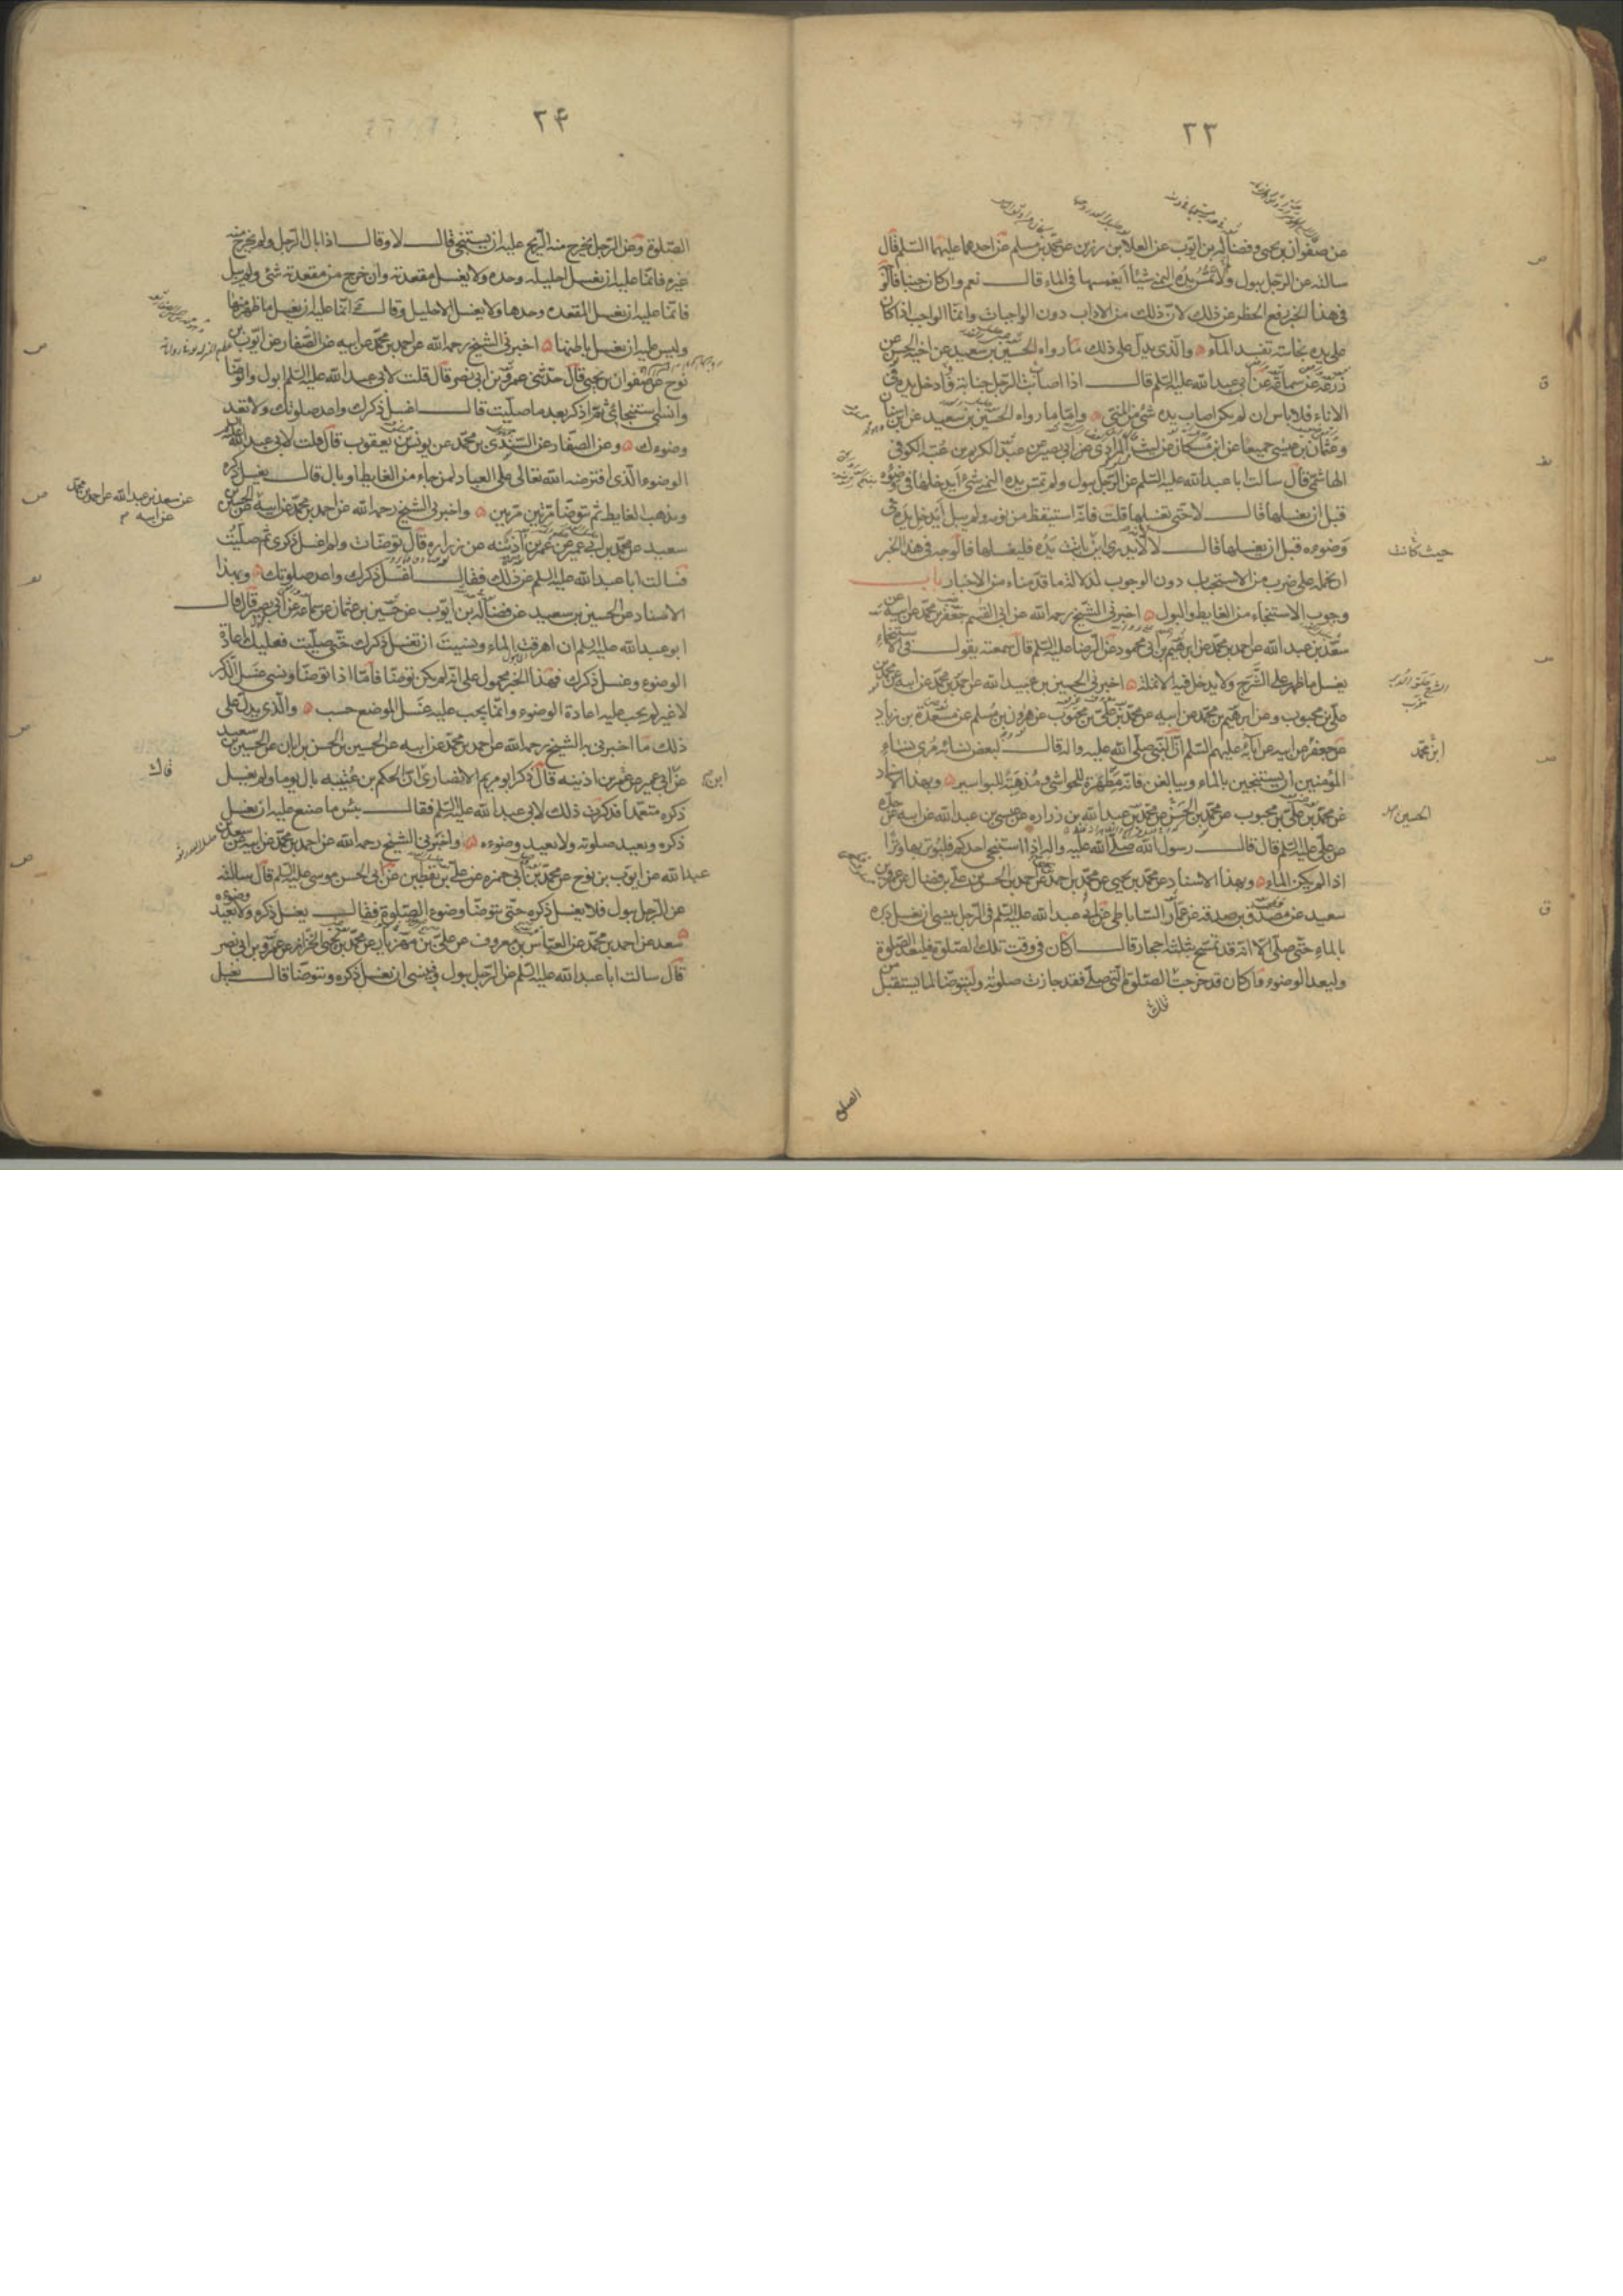 ٢٣
عن صفوان بن يحيى وفضالة بن ايوب عن العلا بن رزين عن محمد بن مسلم عن احدهما عليهما السلم قال
سالته عن الرجل يبول ولا تمس يده اليمنى شيئا ايغمسها في الماء قال نعم وان كان جنبا فالو
في هذا الخبر رفع الحظر عن ذلك لان ذلك من الاداب دون الواجبات وانما الواجب اذا كان
على يده نجاسة تفسد الماء والذي يدل على ذلك ما رواه الحسين بن سعيد عن اخيه الحسن عن
زرعة عن سماعة عن ابي عبد الله عليه السلم قال اذا اصابت الرجل جنابة فادخل يده في
الاناء فلا باس ان لم يكن اصاب يده شئ من المني واما ما رواه الحسين بن سعيد عن ابن سنان
وعثمان بن عيسى جميعا عن ابن مسكان عن ليث المرادي عن ابي بصير عن عبد الكريم بن عتبة الكوفي
الهاشمي قال سالت ابا عبد الله عليه السلم عن الرجل يبول ولم تمس يده اليمنى شئ ايدخلها في وضوئه
قبل ان يغسلها قال لا حتى يغسلها قلت فانه استيقظ من نومه ولم يبل ايدخل يده في
وضوءه قبل ان يغسلها قال لا لانه لا يدري اين باتت يده فليغسلها فالوجه في هذا الخبر
ان نحمله على ضرب من الاستحباب دون الوجوب لدلالة ما قدمناه من الاخبار باب
وجوب الاستنجاء من الغايط والبول اخبرني الشيخ رحمه الله عن ابي القسم جعفر بن محمد عن ابيه عن
سعد بن عبد الله عن احمد بن محمد عن ابرهيم بن ابي محمود عن الرضا عليه السلم قال سمعته يقول في الاستنجاء
يغسل ما ظهر على الشرج ولا يدخل فيه الانملة اخبرني الحسين بن عبيد الله عن احمد بن محمد عن ابيه عن محمد بن
علي بن محبوب وعن ابرهيم بن محمد عن ابيه عن محمد بن علي بن محبوب عن هرون بن مسلم عن مسعدة بن زياد
عن جعفر عن ابيه عن آبائه عليهم السلم ان النبي صلى الله عليه واله قال لبعض نسائه مري نساء
المؤمنين ان يستنجين بالماء ويبالغن فانه مطهرة للحواشي ومذهبة للبواسير وبهذا الاسناد
عن محمد بن علي بن محبوب عن محمد بن الحسين عن محمد بن عبد الله بن زرارة عن عيسى بن عبد الله عن ابيه عن جده
عن علي عليه السلم قال قال رسول الله صلى الله عليه واله اذا استنجى احدكم فليوتر بها وترا
اذا لم يكن الماء وبهذا الاسناد عن محمد بن يحيى عن محمد بن احمد عن احمد بن الحسن بن علي بن فضال عن عمرو بن
سعيد عن مصدق بن صدقة عن عمار الساباطي عن ابي عبد الله عليه السلم في الرجل ينسى ان يغسل دبره
بالماء حتى صلى الا انه قد تمسح بثلثة احجار قال ان كان في وقت تلك الصلوة فليعد الصلوة
وليعد الوضوء وان كان قد خرجت الصلوة التي صلى فقد جازت صلوته وليتوضا لما يستقبل من
حيث كانت
ابن محمد
الحسين
الصلوة
٢۴
الصلوة وعن الرجل يخرج منه الريح عليه ان يستنجي قال لا وقال اذا بال الرجل ولم يخرج منه
غيره فانما عليه ان يغسل احليله وحده ولا يغسل مقعدته وان خرج من مقعدته شئ ولم يبل
فانما عليه ان يغسل المقعدة وحدها ولا يغسل الاحليل وقال انما عليه ان يغسل ما ظهر منها
وليس عليه ان يغسل باطنها اخبرني الشيخ رحمه الله عن احمد بن محمد عن ابيه عن الصفار عن ايوب بن
نوح عن صفوان بن يحيى قال حدثني عمرو بن ابي نصر قال قلت لابي عبد الله عليه السلم ابول واتوضا
وانسى استنجائي ثم اذكر بعد ما صليت قال اغسل ذكرك واعد صلوتك ولا تعد
وضوءك وعن الصفار عن السندي بن محمد عن يونس بن يعقوب قال قلت لابي عبد الله
الوضوء الذي افترضه الله تعالى على العباد لمن جاء من الغايط او بال قال يغسل ذكره
ويذهب الغايط ثم يتوضا مرتين مرتين واخبرني الشيخ رحمه الله عن احمد بن محمد عن ابيه عن الحسين بن
سعيد عن محمد بن ابي عمير عن عمر بن اذينه عن زراره قال توضات ولم اغسل ذكري ثم صليت
فسالت ابا عبد الله عليه السلم عن ذلك فقال اغسل ذكرك واعد صلوتك وبهذا
الاسناد عن الحسين بن سعيد عن فضالة بن ايوب عن حسين بن عثمان عن سماعة عن ابي بصير قال قال
ابو عبد الله عليه السلم ان اهرقت الماء ونسيت ان تغسل ذكرك حتى صليت فعليك اعادة
الوضوء وغسل ذكرك فهذا الخبر محمول على انه لم يكن توضا فاما اذا توضا ونسي غسل الذكر
لا غير لم يجب عليه اعادة الوضوء وانما يجب عليه غسل الموضع حسب والذي يدل على
ذلك ما اخبرني به الشيخ رحمه الله عن احمد بن محمد عن ابيه عن الحسين بن الحسن بن ابان عن الحسين بن سعيد
عن ابي عمير عن عمر بن اذينه قال ذكر ابو مريم الانصاري ان الحكم بن عتيبه بال يوما ولم يغسل
ذكره متعمدا فذكرت ذلك لابي عبد الله عليه السلم فقال بئس ما صنع عليه ان يغسل
ذكره ويعيد صلوته ولا يعيد وضوءه واخبرني الشيخ رحمه الله عن احمد بن محمد عن ابيه عن سعد بن
عبد الله عن ايوب بن نوح عن محمد بن ابي حمزه عن علي بن يقطين عن ابي الحسن موسى عليه السلم قال سالته
عن الرجل يبول فلا يغسل ذكره حتى يتوضا وضوء الصلوة فقال يغسل ذكره ولا يعيد وضوءه
سعد عن احمد بن محمد عن العباس بن معروف عن علي بن مهزيار عن محمد بن يحيى الخزاز عن عمرو بن ابي نصر
قال سالت ابا عبد الله عليه السلم عن الرجل يبول فينسى ان يغسل ذكره ويتوضا قال يغسل
عن سعد بن عبد الله عن احمد بن محمد
عن ابيه
ابن